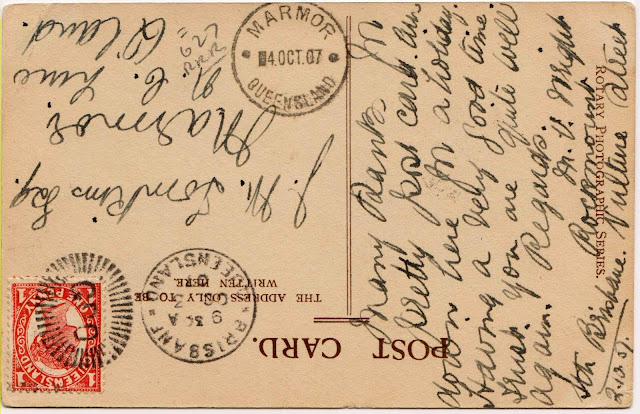 POST CARD.
THE ADDRESS ONLY TO BE
WRITTEN HERE
ROTARY PHOTOGRAPHIC SERIES.
Many thanks for
pretty post card. Am
now down here for a holiday
Having a very good time.
trust you are quite well
again. Regards
V. Wright
Rockmount
Vulture Street
Sth Brisbane.
J. H. Tomkins Esq
Marmor
N. C. Line
Q'land
MARMOR
4 OCT. 07
QUEENSLAND
BRISBANE
QUEENSLAND
QUEENSLAND
ONE PENNY
1
1